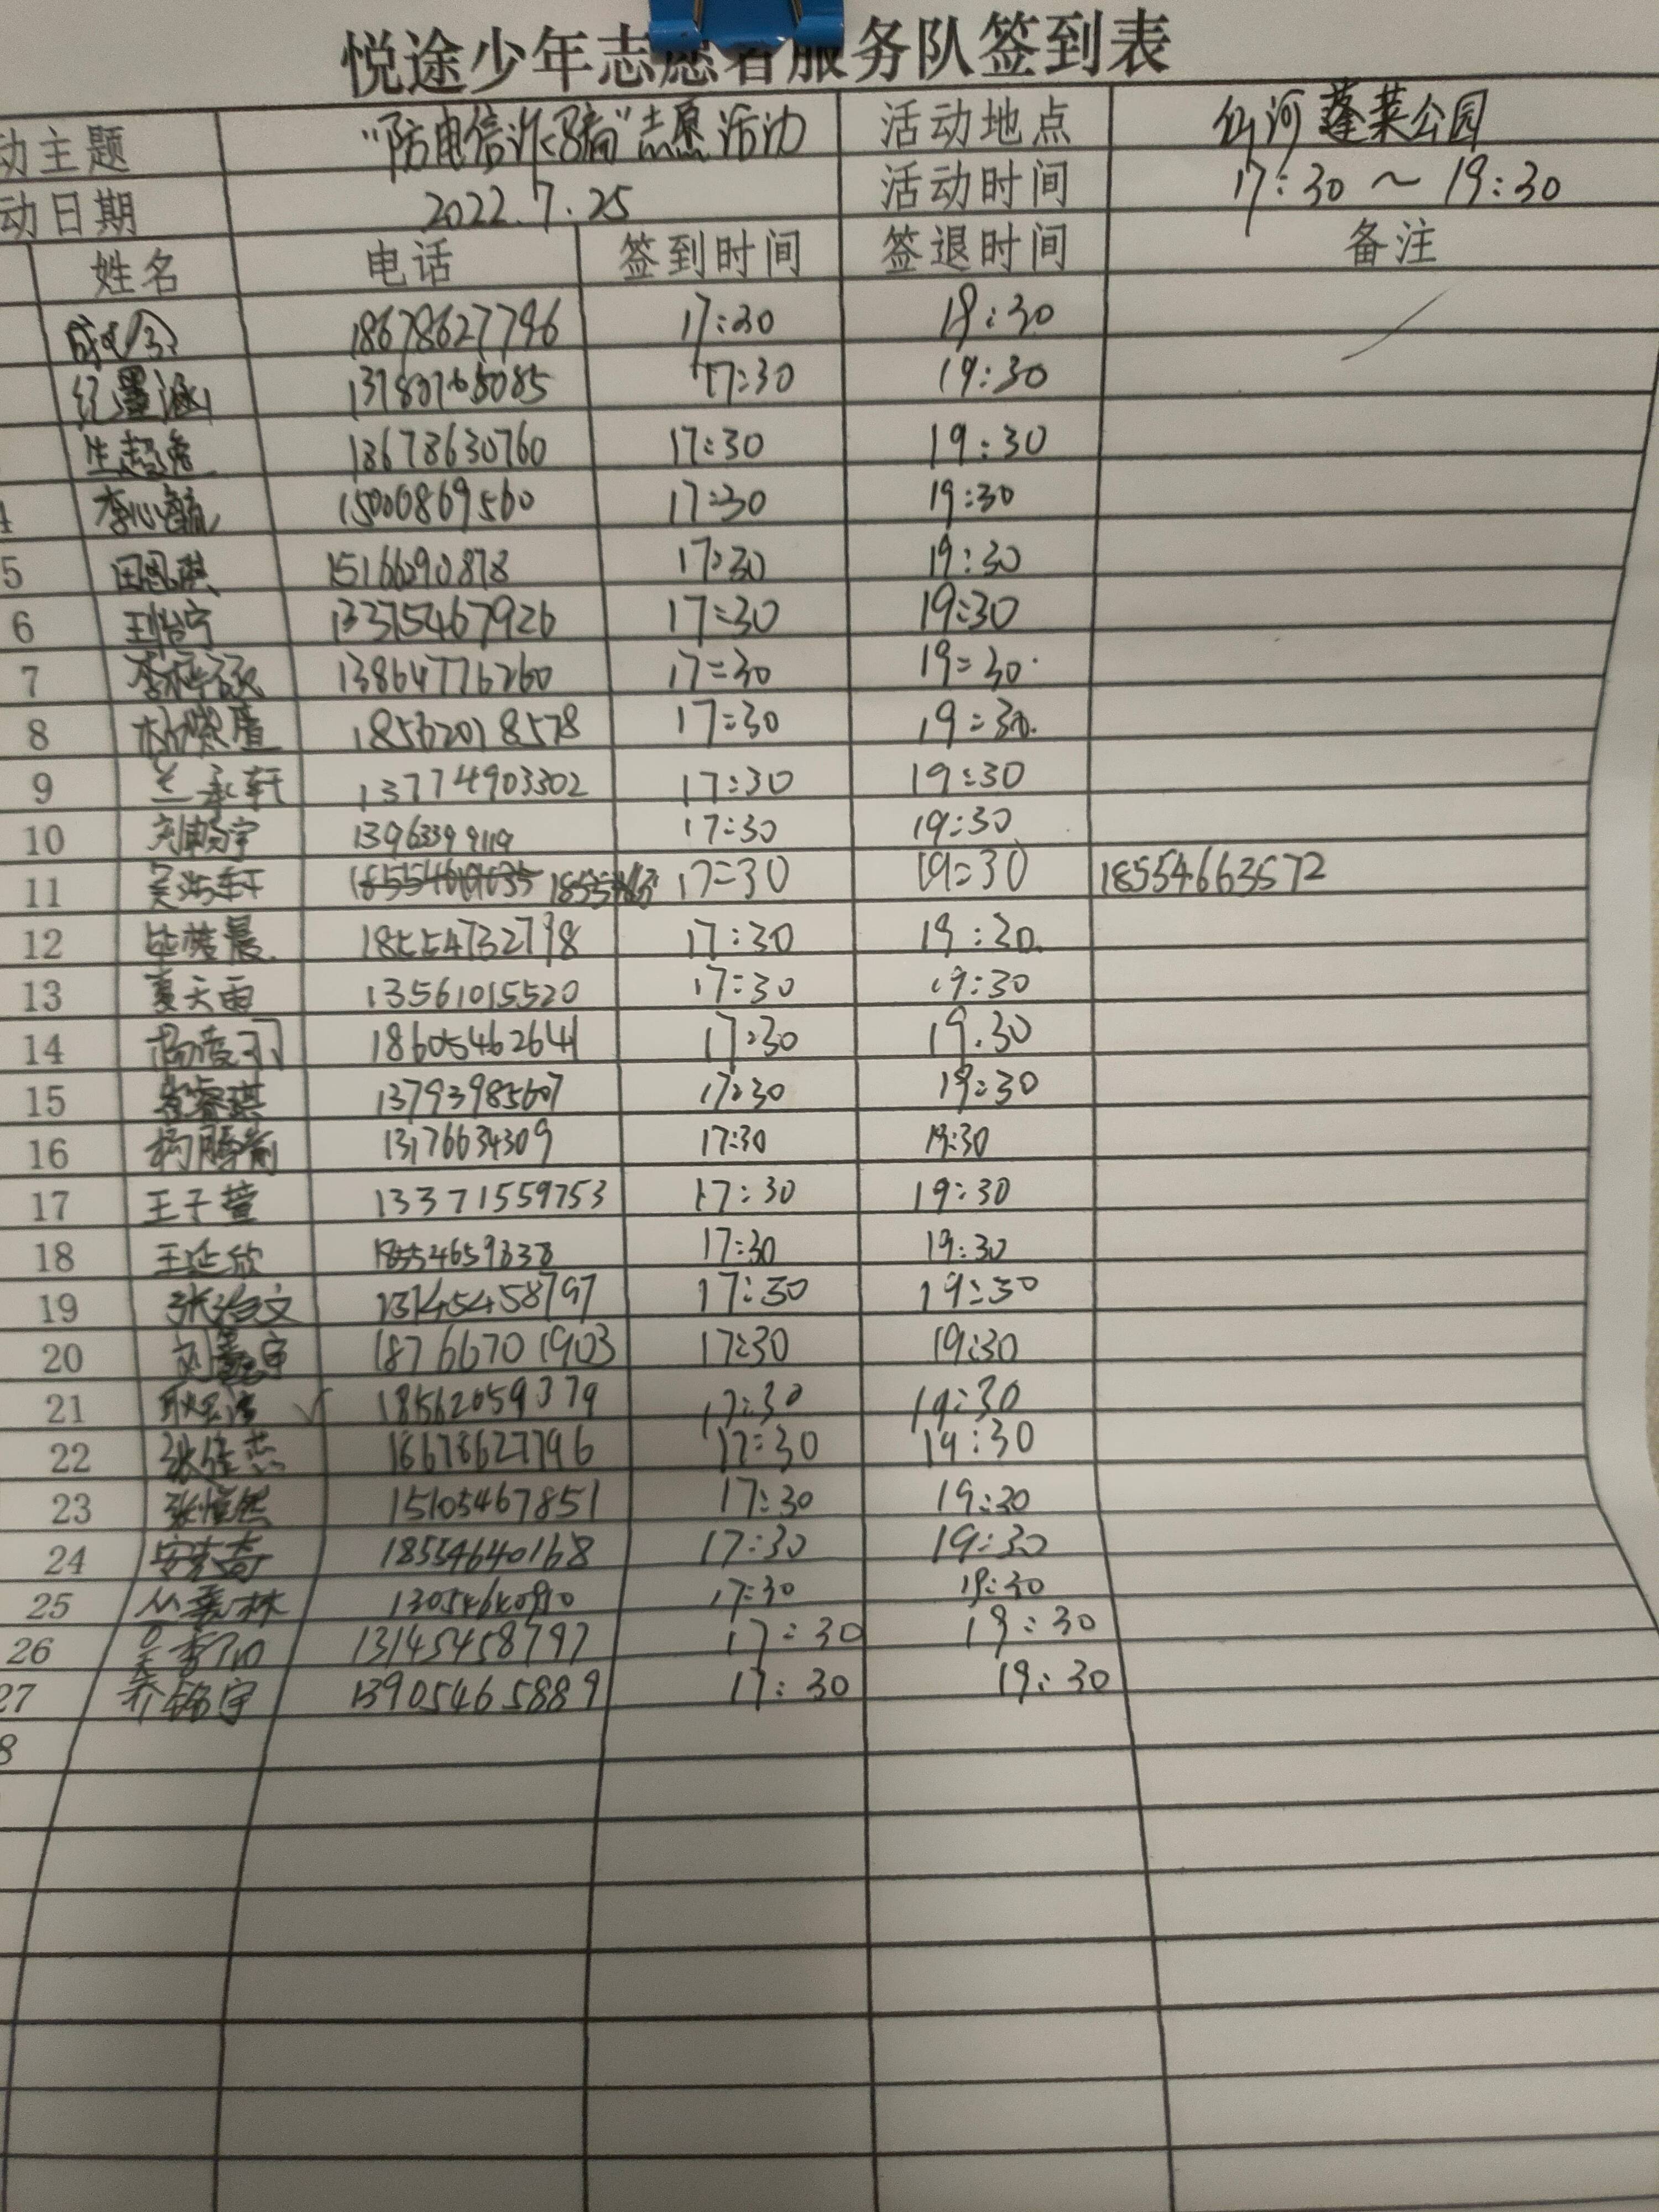 悦途少年志愿者服务队签到表
动主题 "防电信诈骗"志愿活动 活动地点 仙河蓬莱公园
动日期 2022.7.25 活动时间 17:30～19:30
姓名 电话 签到时间 签退时间 备注
18678627796 17:30 19:30
纪墨涵 17:30 19:30
18678630760 17:30 19:30
4 李心毓 15000869560 17:30 19:30
5 田恩琪 15166290878 17:30 19:30
6 王怡宁 13375467926 17:30 19:30
7 13864776260 17:30 19:30
8 17:30 19:30
9 兰承轩 13774903302 17:30 19:30
10 刘畅宇 13963399119 17:30 19:30
11 吴浩轩 17:30 19:30 18554663572
12 毕梦晨 18554732798 17:30 19:30
13 夏天雨 13561015520 17:30 19:30
14 18605462641 17:30 19.30
15 13793985607 17:30 19:30
16 13176634309 17:30 19:30
17 王子萱 13371559753 17:30 19:30
18 王延欣 18554659838 17:30 19:30
19 13145458797 17:30 19:30
20 18766701903 17:30 19:30
21 18562059379 17:30 19:30
22 张佳杰 18678627796 17:30 19:30
23 张惟然 15105467851 17:30 19:30
24 18554640168 17:30 19:30
25 丛森林 17:30 19:30
26 13145458797 17:30 19:30
27 乔铭宇 13905465889 17:30 19:30
8